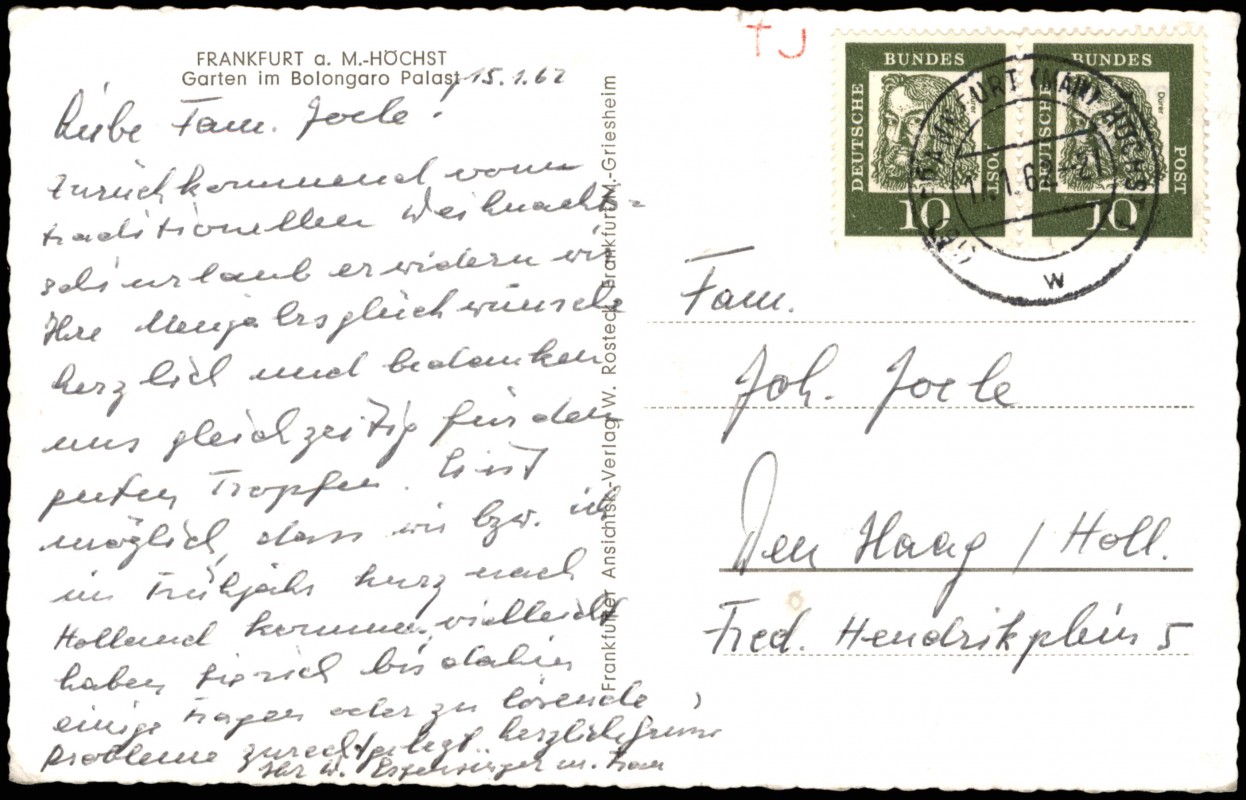 FRANKFURT a. M.-HÖCHST
Garten im Bolongaro Palast
15.1.62
Liebe Fam. Joele!
zurückkommend vom
traditionellen Weihnacht=
schiurlaub erwidern wir
Ihre Neujahrsglückwünsche
herzlich und bedanken
uns gleichzeitig für den
guten Tropfen. Es ist
möglich, dass wir bzw. ich
im Frühjahr kurz nach
Holland kommen, vielleicht
haben Sie sich bis dahin
einige Fragen oder zu lösende
Probleme zurechtgelegt. herzliche Grüsse
Ihr W. m. Frau
Frankfurter Ansichtsk.-Verlag W. Rosteck, Frankfurt/M.-Griesheim
TJ
DEUTSCHE BUNDES POST
10
Dürer
DEUTSCHE BUNDES POST
10
Dürer
FRANKFURT (MAIN) HÖCHST 1
1.62
w
Fam.
Joh. Joele
Den Haag / Holl.
Fred. Hendrikplein 5